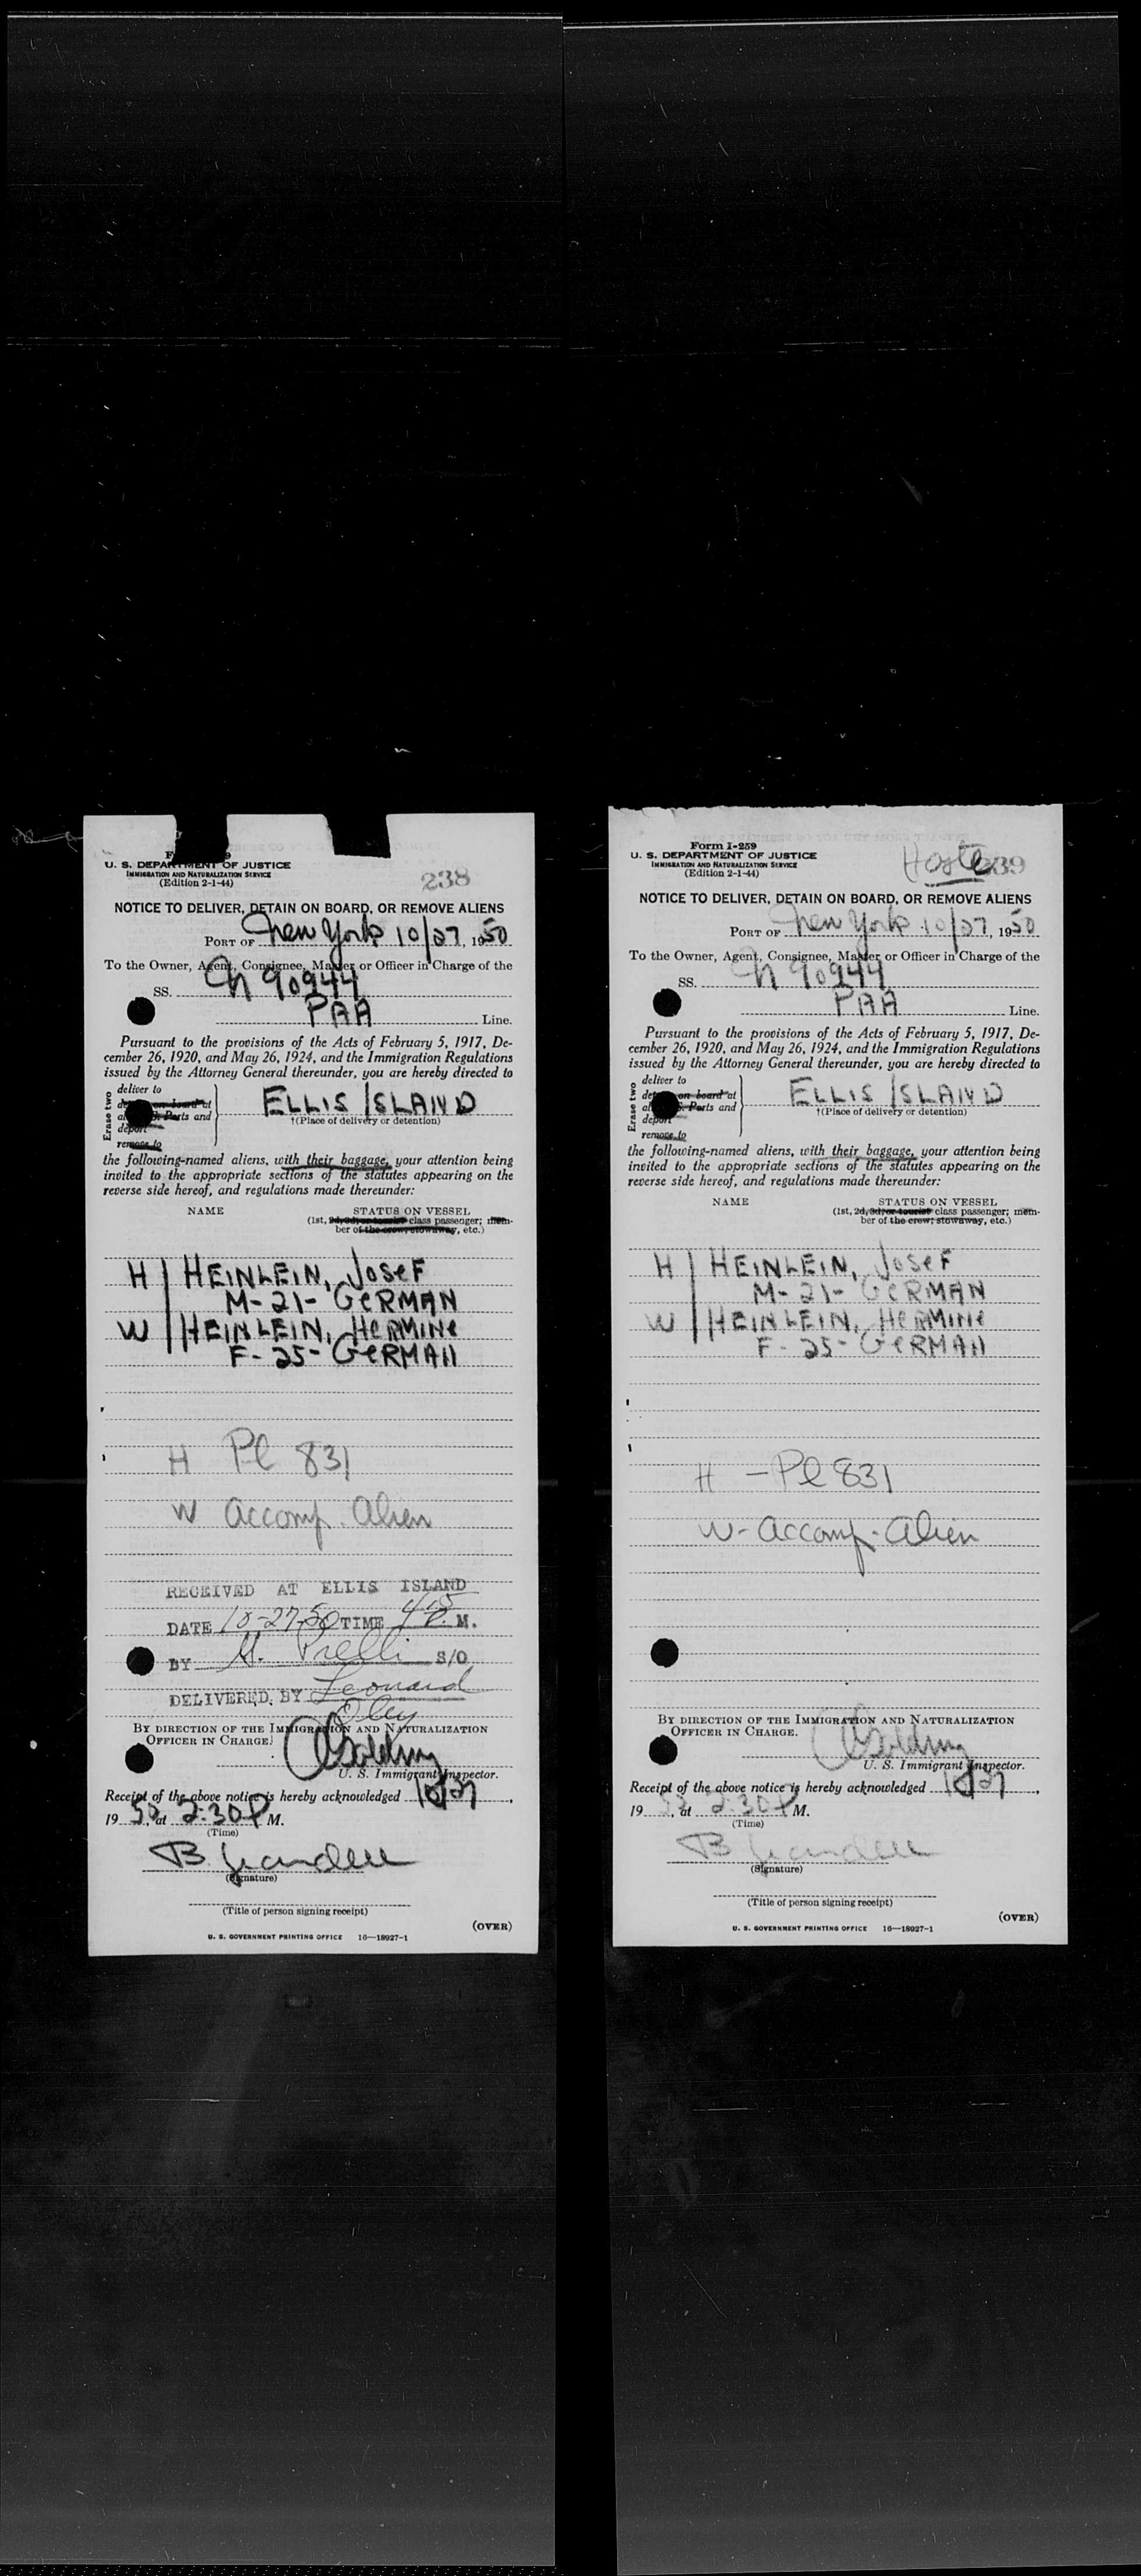 238
U. S. DEPARTMENT OF JUSTICE
IMMIGRATION AND NATURALIZATION SERVICE
(Edition 2-1-44)
NOTICE TO DELIVER, DETAIN ON BOARD, OR REMOVE ALIENS
PORT OF New York 10/27, 1950
To the Owner, Agent, Consignee, Master or Officer in Charge of the
SS. N 90944
PAA Line.
Pursuant to the provisions of the Acts of February 5, 1917, De-
cember 26, 1920, and May 26, 1924, and the Immigration Regulations
issued by the Attorney General thereunder, you are hereby directed to
Erase two
deliver to
on board at
Ports and
deport
remove to
ELLIS ISLAND
†(Place of delivery or detention)
the following-named aliens, with their baggage, your attention being
invited to the appropriate sections of the statutes appearing on the
reverse side hereof, and regulations made thereunder:
NAME STATUS ON VESSEL
(1st, 2d, 3d, or tourist class passenger; mem-
ber of the crew; stowaway, etc.)
H HEINLEIN, JOSEF
M-21-GERMAN
W HEINLEIN, HERMINE
F-25-GERMAN
H Pl 831
W accomp. Alien
RECEIVED AT ELLIS ISLAND
DATE 10-27-50 TIME 4:15 P. M.
BY M. Prelli S/O
DELIVERED BY Leonard
BY DIRECTION OF THE IMMIGRATION AND NATURALIZATION
OFFICER IN CHARGE.
U. S. Immigrant Inspector.
Receipt of the above notice is hereby acknowledged 10/27,
1950, at 2:30 P M.
(Time)
(Signature)
(Title of person signing receipt)
(OVER)
U. S. GOVERNMENT PRINTING OFFICE 16—18927-1
Form I-259
U. S. DEPARTMENT OF JUSTICE
IMMIGRATION AND NATURALIZATION SERVICE
(Edition 2-1-44)
239
NOTICE TO DELIVER, DETAIN ON BOARD, OR REMOVE ALIENS
PORT OF New York 10/27, 1950
To the Owner, Agent, Consignee, Master or Officer in Charge of the
SS. N 90944
PAA Line.
Pursuant to the provisions of the Acts of February 5, 1917, De-
cember 26, 1920, and May 26, 1924, and the Immigration Regulations
issued by the Attorney General thereunder, you are hereby directed to
Erase two
deliver to
on board at
Ports and
deport
remove to
ELLIS ISLAND
†(Place of delivery or detention)
the following-named aliens, with their baggage, your attention being
invited to the appropriate sections of the statutes appearing on the
reverse side hereof, and regulations made thereunder:
NAME STATUS ON VESSEL
(1st, 2d, 3d, or tourist class passenger; mem-
ber of the crew; stowaway, etc.)
H HEINLEIN, JOSEF
M-21-GERMAN
W HEINLEIN, HERMINE
F-25-GERMAN
H - Pl 831
W - accomp. alien
BY DIRECTION OF THE IMMIGRATION AND NATURALIZATION
OFFICER IN CHARGE.
U. S. Immigrant Inspector.
Receipt of the above notice is hereby acknowledged 10/27,
1950, at 2:30 P M.
(Time)
(Signature)
(Title of person signing receipt)
(OVER)
U. S. GOVERNMENT PRINTING OFFICE 16—18927-1